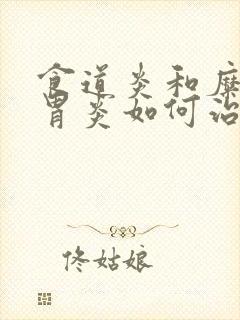 食道炎和糜
胃炎如何治
佟姑娘